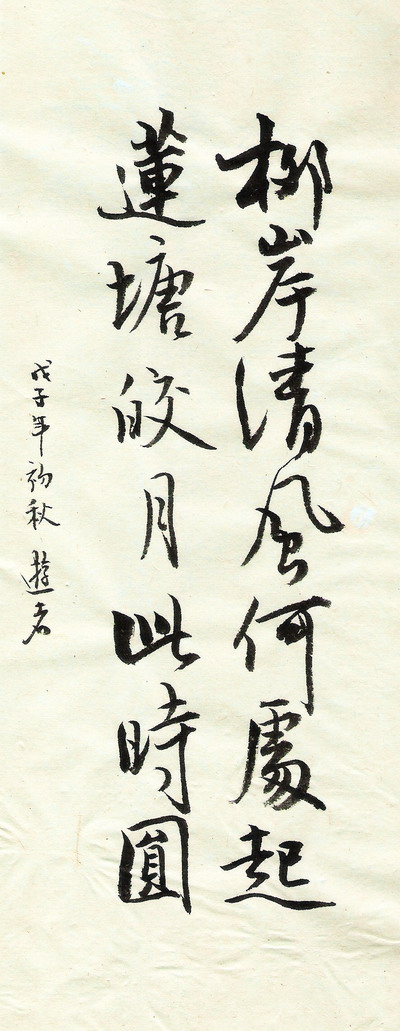 柳岸清風何處起
蓮塘皎月此時圓
戊子年初秋 遊者